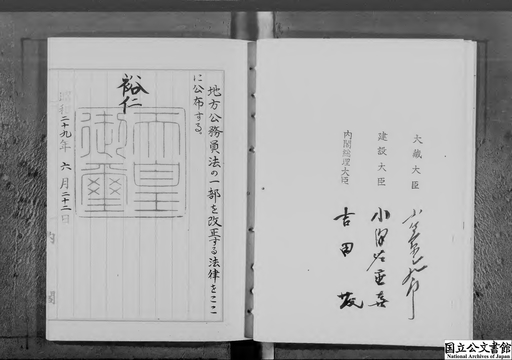 大蔵大臣
小笠原三九郎
建設大臣
小沢佐重喜
内閣総理大臣
吉田茂
地方公務員法の一部を改正する法律をここ
に公布する。
裕仁
天皇
御璽
昭和二十九年六月二十二日
国立公文書館
National Archives of Japan